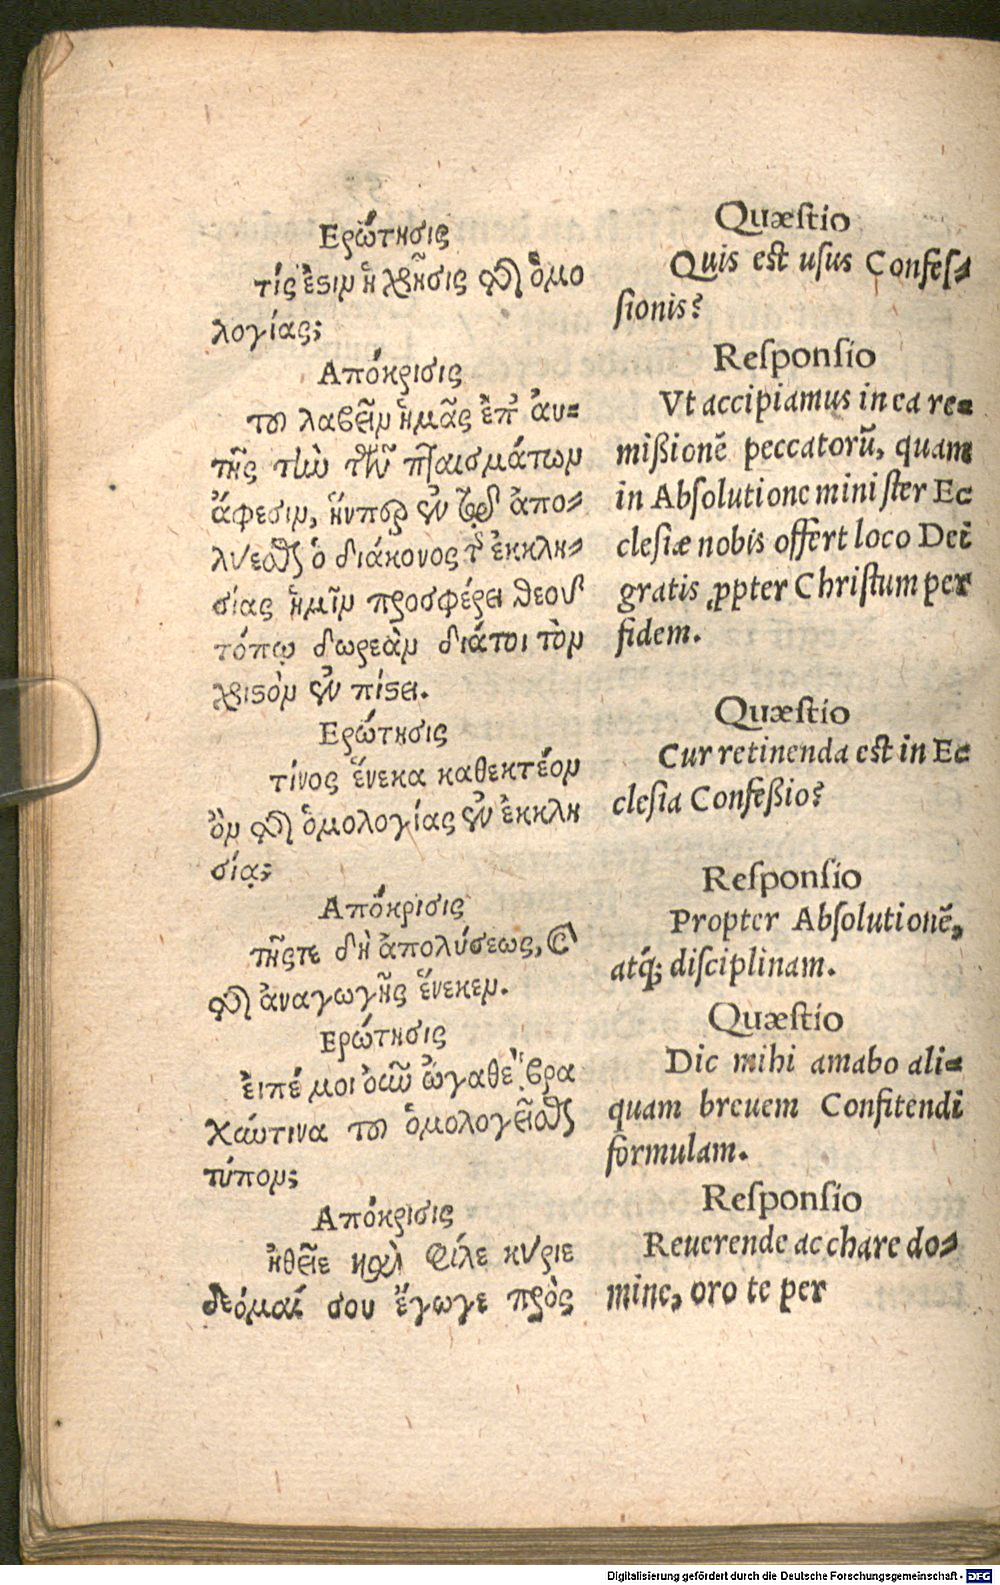 Ερώτησις
τίς ἐϛιν ἡ χρῆσις τῆς ὁμο
λογίας;
Απόκρισις
του λαβεῖν ἡμᾶς ἐπ' ἀυ-
τῆς τὴν τῶν πταισμάτων
ἄφεσιν, ἥνπερ ἐν τῷ ἀπο-
λύεσθαι ὁ διάκονος τῆς ἐκκλη-
σίας ἡμῖν προσφέρει θεοῦ
τόπῳ δωρεὰν διάτοι τὸν
χριϛὸν ἐν πίϛει.
Ερώτησις
τίνος ἕνεκα καθεκτέον
ὂν τῆς ὁμολογίας ἐν ἐκκλη
σίᾳ;
Απόκρισις
τῆςτε δὴ ἀπολύσεως, καὶ
τῆς ἀναγωγῆς ἕνεκεν.
Ερώτησις
ἐιπέ μοι οὖν ὦγαθὲ βρα
χεῖάντινα του ὁμολογεῖσθαι
τύπον;
Απόκρισις
ἠθεῖε καὶ φίλε κύριε
δεόμαί σου ἔγωγε πρὸς
Quæstio
Quis est usus Confes-
sionis?
Responsio
Vt accipiamus in ea re-
mißionẽ peccatorũ, quam
in Absolutione minister Ec
clesiæ nobis offert loco Dei
gratis ꝓpter Christum per
fidem.
Quæstio
Cur retinenda est in Ec
clesia Confeßio?
Responsio
Propter Absolutionẽ,
atq́; disciplinam.
Quæstio
Dic mihi amabo ali-
quam breuem Confitendi
formulam.
Responsio
Reuerende ac chare do-
mine, oro te per
Digitalisierung gefördert durch die Deutsche Forschungsgemeinschaft - DFG